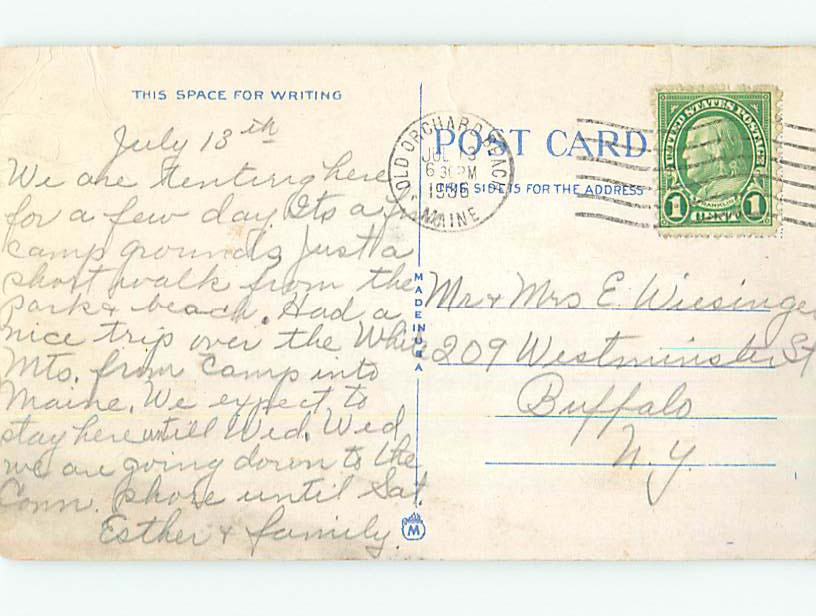 THIS SPACE FOR WRITING
July 13th
We are tenting here
for a few day. Its a
camp grounds just a
short walk from the
Park & beach. Had a
nice trip over the White
Mts. from Camp into
Maine. We expect to
stay here until Wed. Wed
we are going down to the
Conn. shore until Sat.
Esther & family.
MADE IN U S A
M
POST CARD
THIS SIDE IS FOR THE ADDRESS
OLD ORCHARD BEACH
JUL 13
6 30 PM
1936
MAINE
UNITED STATES POSTAGE
FRANKLIN
1 CENT 1
Mr & Mrs E. Wiesinger
209 Westminster St
Buffalo
N.Y.